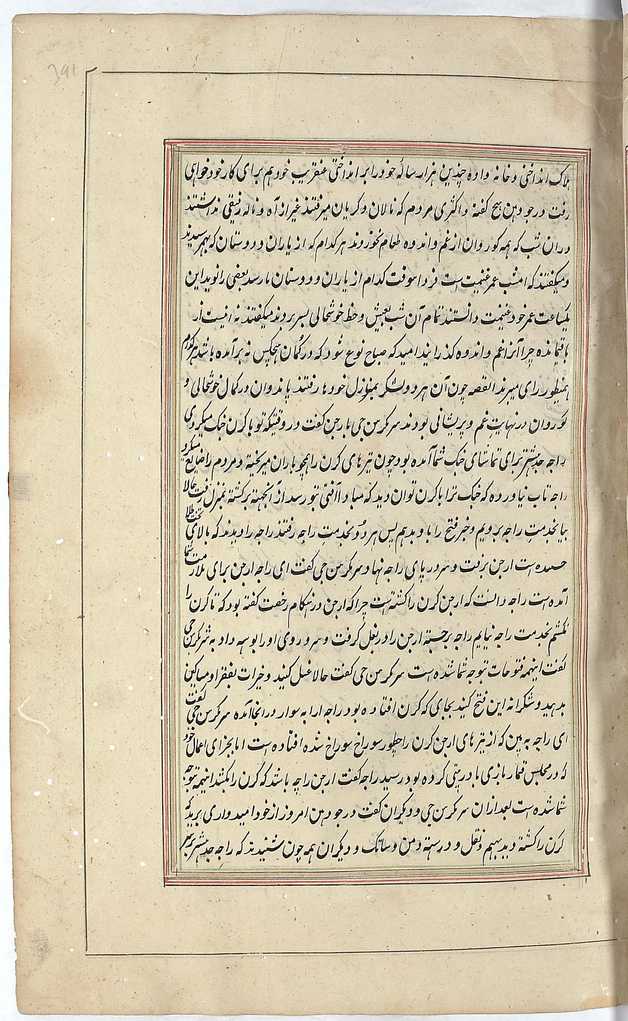 ۳۹۱
هلاک انداختی و خانه واده چندین هزار ساله خود را بر انداختی عنقریب خود هم برای کار خود خواهی
رفت درجودهن هیچ نگفت و اکثری مردم که نالان و گریان میرفتند غیر از آه و ناله رفیقی نداشتند
دران شب که همه کوروان از غم و اندوه طعام نخوردند هر کدام که از یاران و دوستان که بهم رسیدند
و میگفتند که امشب عمر غنیمت است فردا سوقت کدام از یاران و دوستان ما رسد بعضی را نوید این
یکساعت عمر خود غنیمت دانستند تمام آن شب بعیش و حظ خوشحالی بسر بردند میگفتند
باقیمانده چرا آنرا بغم و اندوه گذرانید امید که صباح نوع شود که در گمان هیچکس نه بر آمده باشد هر کدام
همینطور رای میزدند القصه چون آن هر دو لشکر بمنازل خود ها رفتند پاندوان در کمال خوشحالی و
کوروان در نهایت غم و پریشانی بودند سرکرسن جی بارجن گفت در وقتیکه تو با کرن جنگ میکردی
راجه جدهشتر برای تماشای جنگ شما آمده بود چون تیرهای کرن را همچو باران میریخت و مردم را ضایع میکرد
راجه تاب نیاورده که جنگ ترا با کرن توان دید که مبادا آفتی بتو رسد از آنجهت برگشته بمنزل رفت حالا
بیا بخدمت راجه برویم و خبر فتح را باو بدهیم پس هر دو بخدمت راجه رفتند راجه را دیدند که بالای تخت طلا
خسبیده است ارجن برفت و سر در پای راجه نهاد سرکرسن جی گفت ای راجه ارجن برای ملازمت شما
آمده است راجه دانست که ارجن کرن را کشته است چرا که ارجن در هنگام رخصت گفته بود که تا کرن را
نکشم بخدمت راجه نیایم راجه برجسته ارجن را در بغل گرفت و سر و روی او را بوسه داد به سرکرسن جی
گفت اینهمه فتوحات بتوجه شما شده است سرکرسن جی گفت حالا غسل کنید و خیرات بفقرا و مساکین
بدهید و شکرانه این فتح کنید بجای که کرن افتاده بود راجه ارابه سوار در انجا آمده سرکرسن جی گفت
ای راجه به بین که از تیرهای ارجن کرن را چطور سوراخ سوراخ شده افتاده است اما بجزای اعمال خود
که در مجلس قمار بازی با دروپتی کرده بود رسید راجه گفت ارجن را چه باشد که کرن را بکشد اینهمه توجه
شما شده است بعد ازان سرکرسن جی و دیگران گفت درجودهن امروز از خود امیدواری برید که
کرن را کشته دید بهیم و نکل و درسته دمن و ساتک و دیگران همه چون شنیدند که راجه جدهشتر بر سر